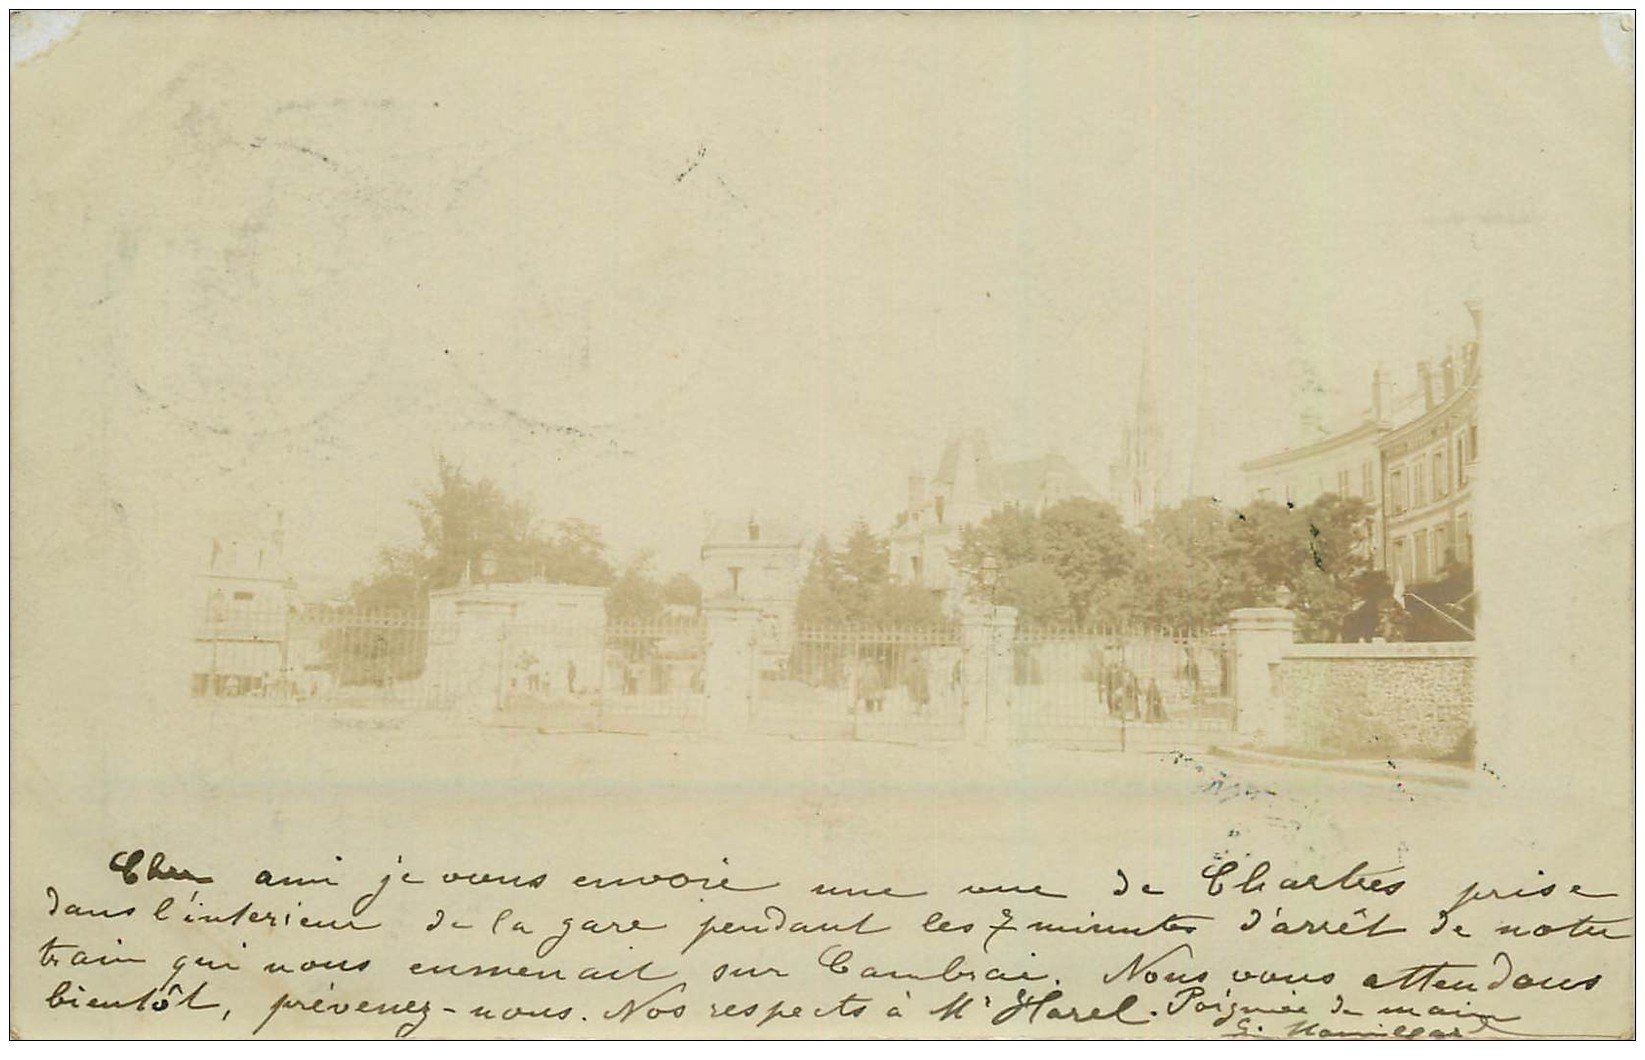 Cher ami je vous envoie une vue de Chartres prise
dans l'interieur de la gare pendant les 7 minutes d'arrêt de notre
train qui nous emmenait sur Cambrai. Nous vous attendons
bientôt, prévenez-nous. Nos respects à Mr Harel. Poignée de main